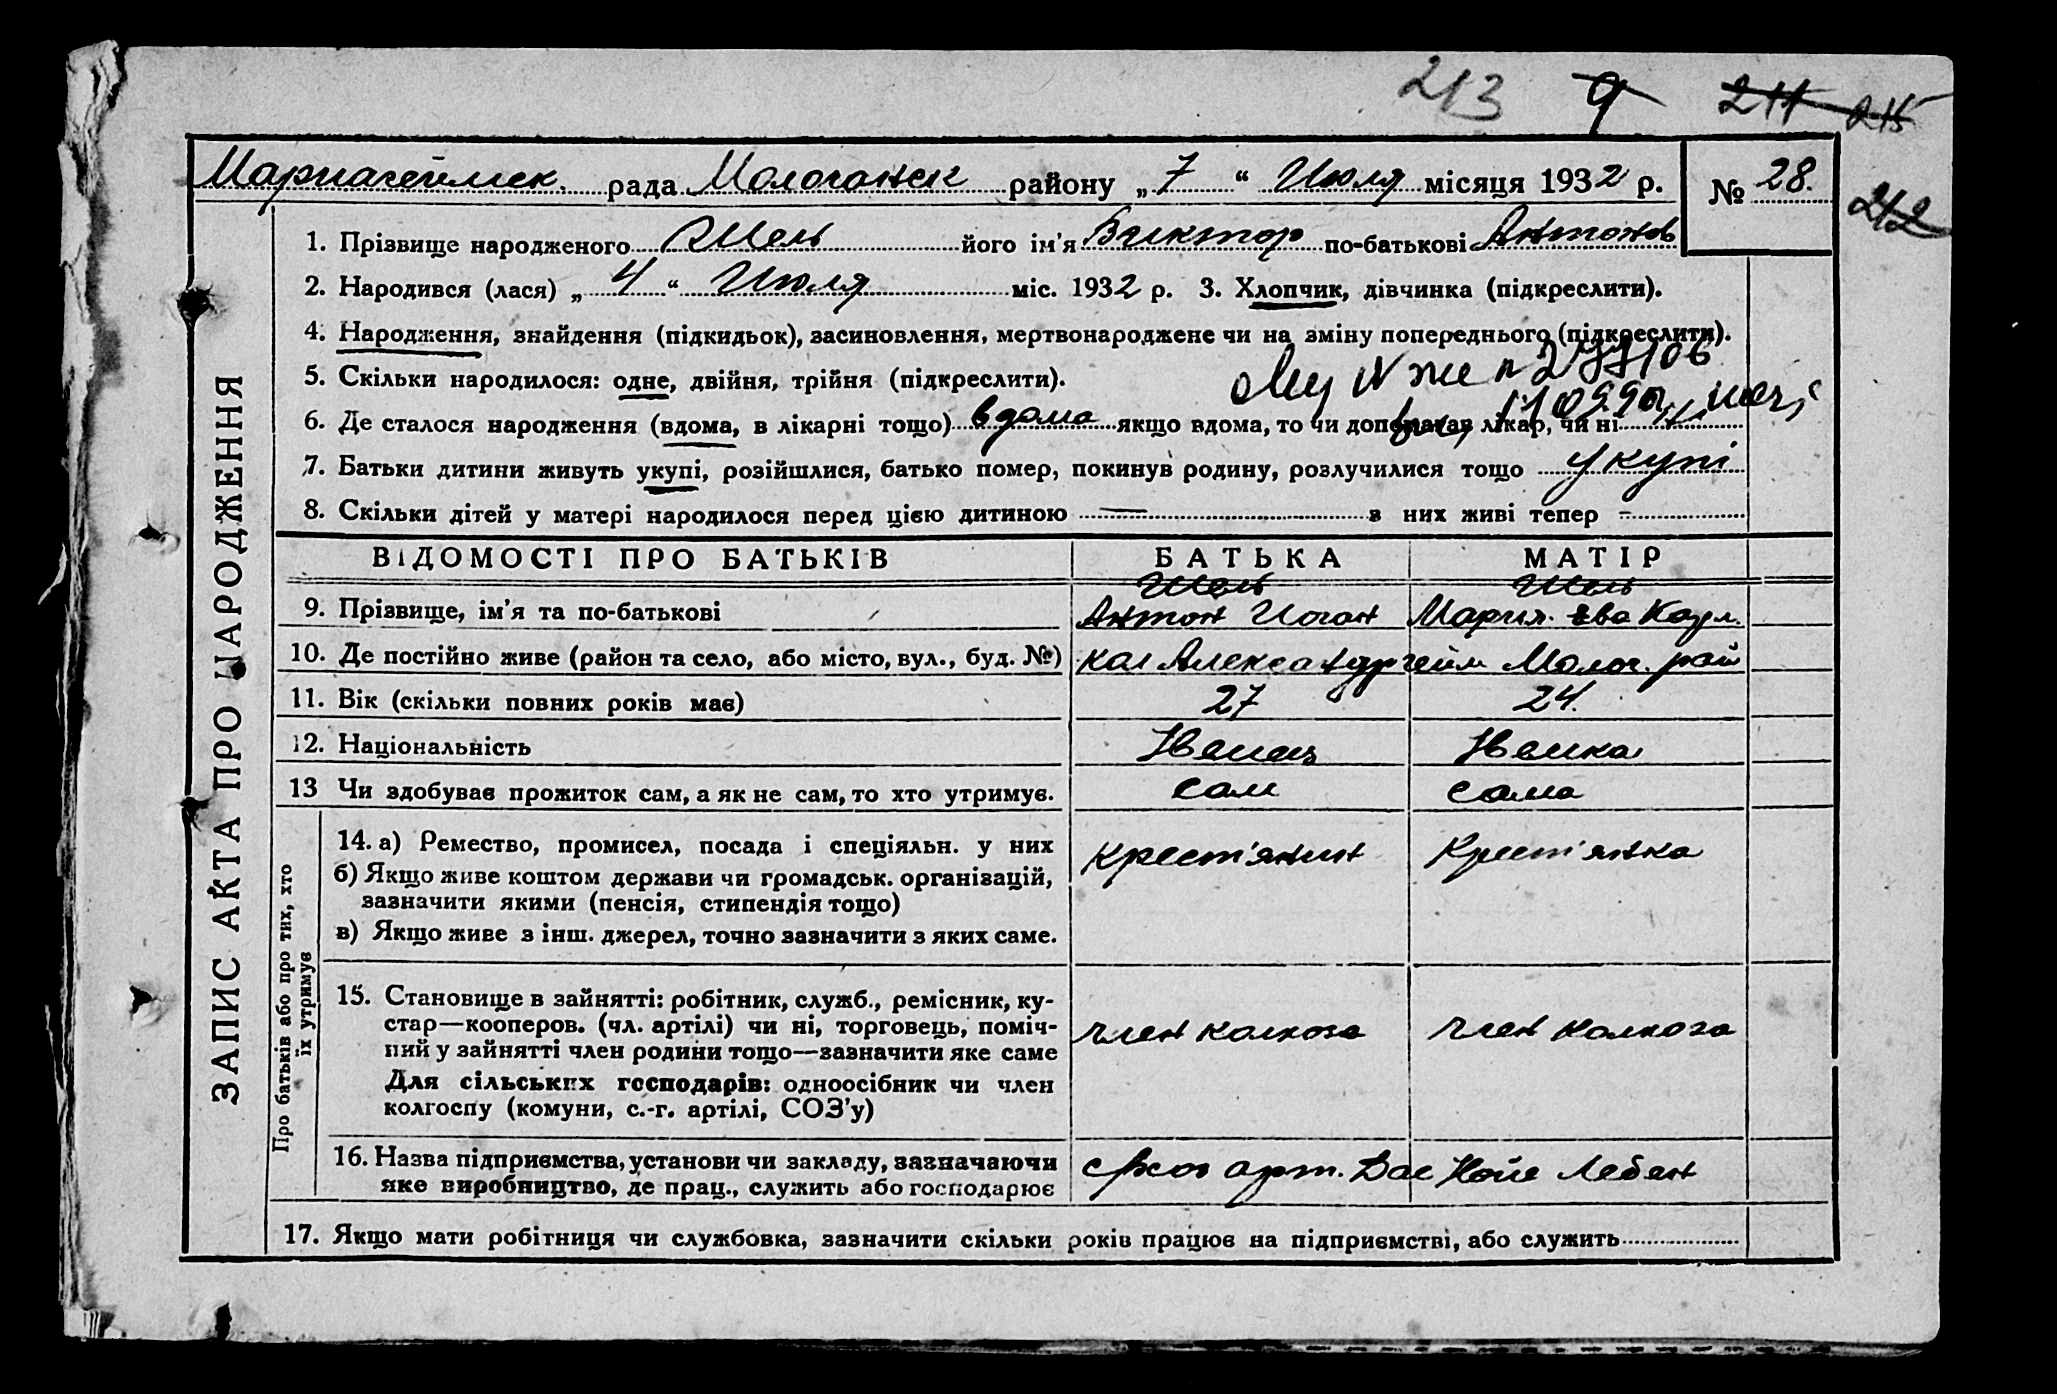 213 9 211 215
Мариагеймск. рада Молочанск району „7“ Июля місяця 1932 р. № 28.
212
1. Прізвище народженого Шель його ім’я Виктор по-батькові Антонов
2. Народився (лася) „4“ Июля міс. 1932 р. 3. Хлопчик, дівчинка (підкреслити).
4. Народження, знайдення (підкидьок), засиновлення, мертвонароджене чи на зміну попереднього (підкреслити).
5. Скільки народилося: одне, двійня, трійня (підкреслити).
6. Де сталося народження (вдома, в лікарні тощо) вдома якщо вдома, то чи допомагав лікар, чи ні
7. Батьки дитини живуть укупі, розійшлися, батько помер, покинув родину, розлучилися тощо укупі
8. Скільки дітей у матері народилося перед цією дитиною — з них живі тепер -
ВІДОМОСТІ ПРО БАТЬКІВ БАТЬКА МАТІР
Шель Шель
9. Прізвище, ім’я та по-батькові Антон Иоган Мария. Ева Карл.
10. Де постійно живе (район та село, або місто, вул., буд. №) кол Александргейм Молоч. рай
11. Вік (скільки повних років має) 27 24.
12. Національність Немец Немка
13 Чи здобуває прожиток сам, а як не сам, то хто утримує. сам сама
14. а) Ремество, промисел, посада і спеціяльн. у них Крест'янин Крест'янка
б) Якщо живе коштом держави чи громадськ. організацій,
зазначити якими (пенсія, стипендія тощо)
в) Якщо живе з інш. джерел, точно зазначити з яких саме.
15. Становище в зайнятті: робітник, служб., ремісник, ку-
стар—кооперов. (чл. артілі) чи ні, торговець, поміч- член колхоза член колхоза
ний у зайнятті член родини тощо—зазначити яке саме
Для сільських господарів: одноосібник чи член
колгоспу (комуни, с.-г. артілі, СОЗ’у)
16. Назва підприємства, установи чи закладу, зазначаючи с/хоз арт. Дас Нойе Лебен
яке виробництво, де прац., служить або господарює
17. Якщо мати робітниця чи службовка, зазначити скільки років працює на підприємстві, або служить
ЗАПИС АКТА ПРО НАРОДЖЕННЯ
Про батьків або про тих, хто
їх утримує